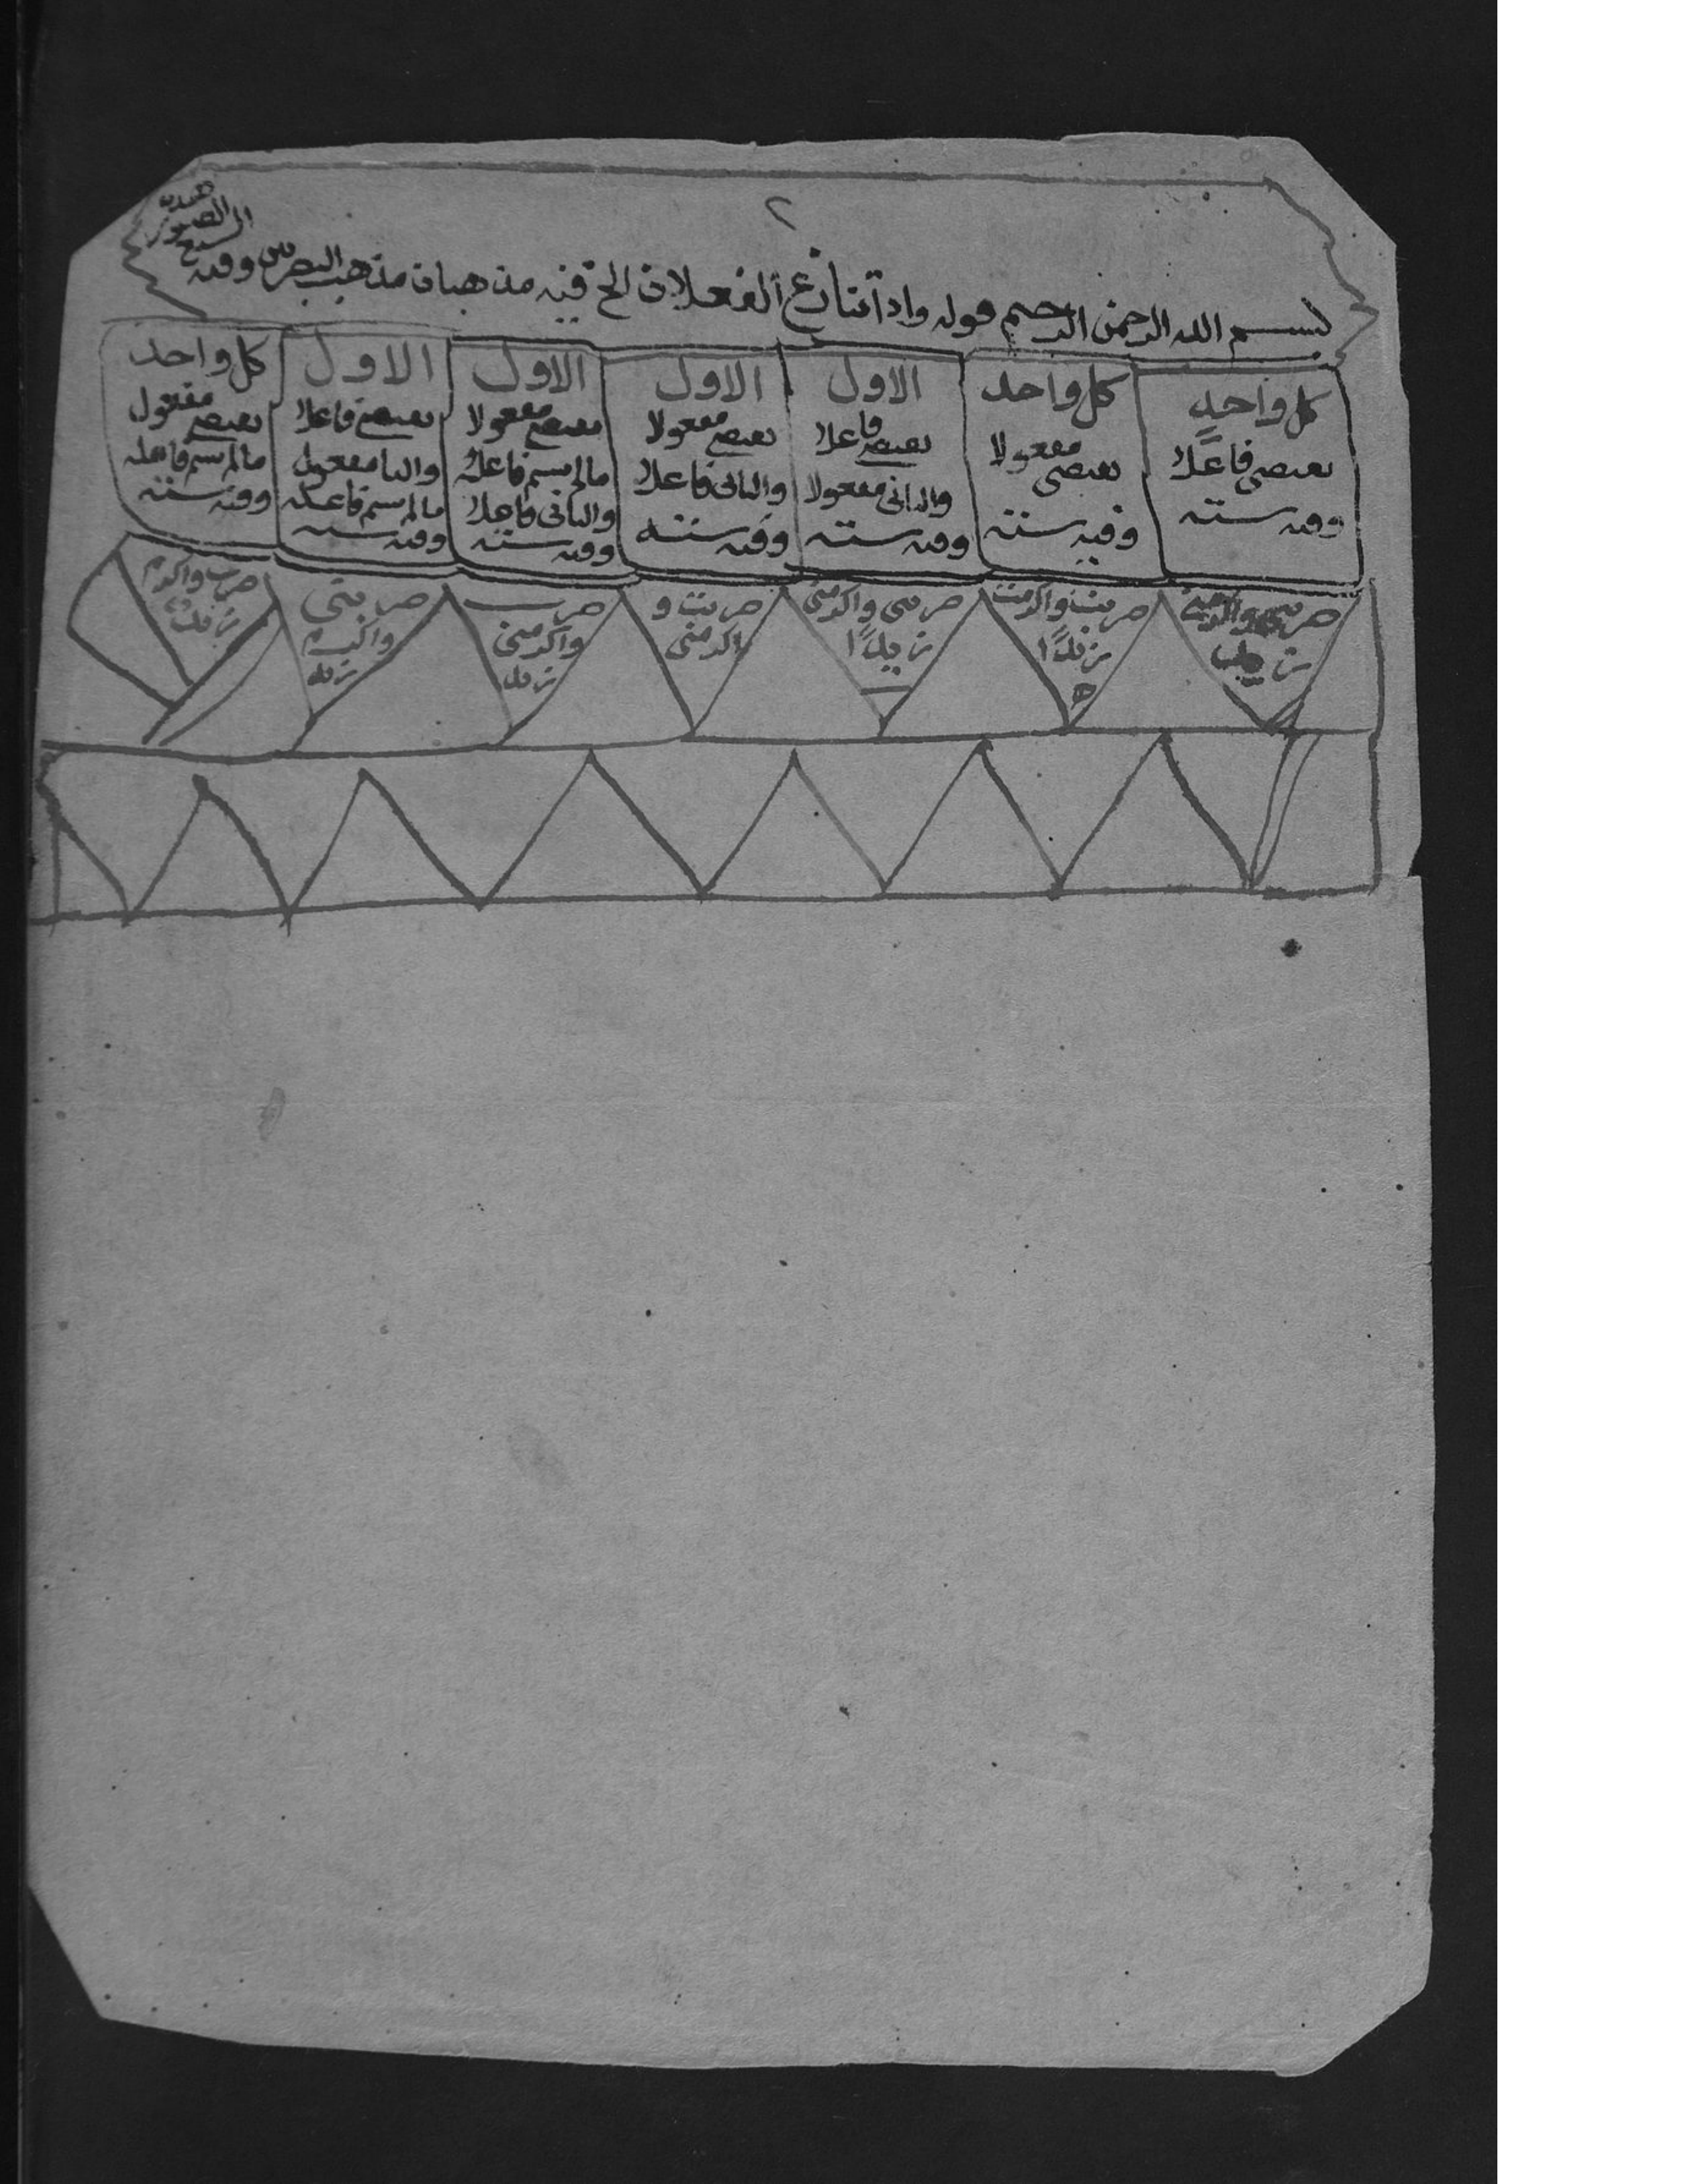 ٢
بسم الله الرحمن الرحيم قوله واذا تنازع الفعلان الخ فيه مذهبان مذهب البصريين وفيه
هذه
الصور
السبع
كل واحد
يقتضى فاعلا
وفيه ستة
كل واحد
يقتضى مفعولا
وفيه ستة
الاول
يقتضى فاعلا
والثانى مفعولا
وفيه ستة
الاول
يقتضى مفعولا
والثانى فاعلا
وفيه ستة
الاول
يقتضى مفعولا
مالم يسم فاعله
والثانى فاعلا
وفيه ستة
الاول
يقتضى فاعلا
والثا مفعول
مالم يسم فاعله
وفيه ستة
كل واحد
يقتضى مفعول
مالم يسم فاعله
وفيه ستة
ضربنى واكرمنى
زيد
ضربت واكرمت
زيدًا
ضربنى واكرمنى
زيدًا
ضربت و
اكرمنى
ضرب
واكرمنى
زيد
ضربنى
واكرم
زيد
ضرب واكرم
زيد